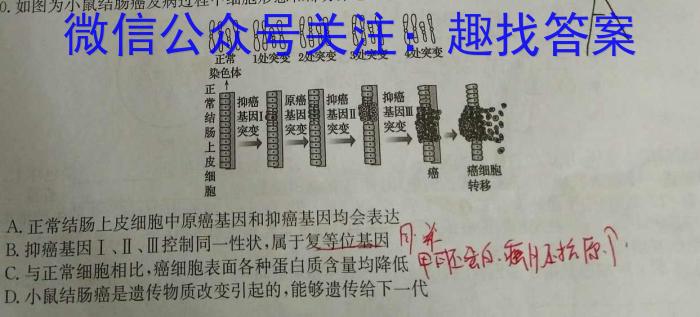 0. 如图为小鼠结肠癌发病过程中细胞形态和
微信公众号关注：趣找答案
正常 1处突变 2处突变 3处突变 4处突变
染色体
正常结肠上皮细胞
抑癌 原癌 抑癌 抑癌
基因Ⅰ 基因 基因Ⅱ 基因Ⅲ
突变 突变 突变 突变
癌 癌细胞
转移
A. 正常结肠上皮细胞中原癌基因和抑癌基因均会表达
B. 抑癌基因Ⅰ、Ⅱ、Ⅲ控制同一性状,属于复等位基因
C. 与正常细胞相比,癌细胞表面各种蛋白质含量均降低
D. 小鼠结肠癌是遗传物质改变引起的,能够遗传给下一代